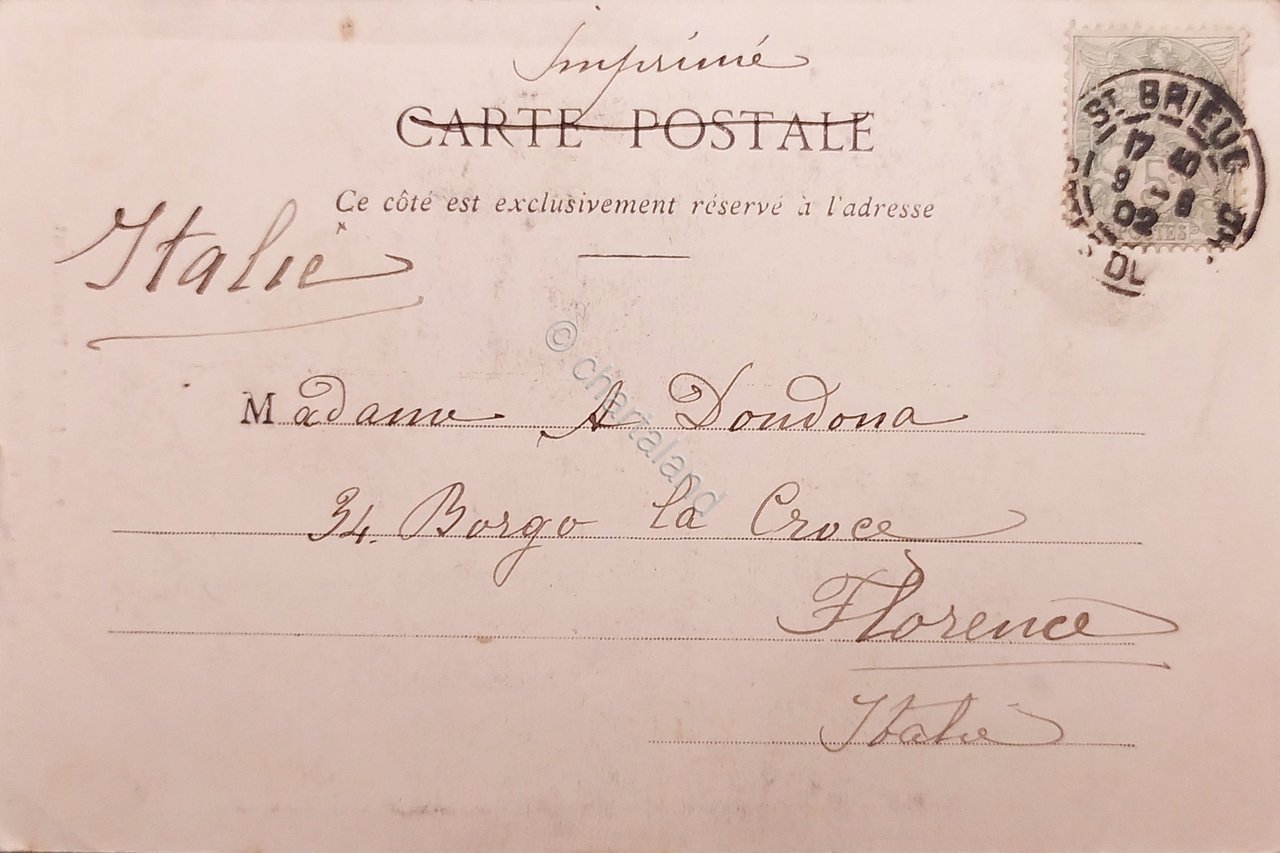 Imprimé
CARTE POSTALE
Ce côté est exclusivement réservé à l'adresse
Italie
Madame A Dondona
34. Borgo la Croce
Florence
Italie
ST. BRIEUC
17
9
02
5
POSTES
DU
© chartaland